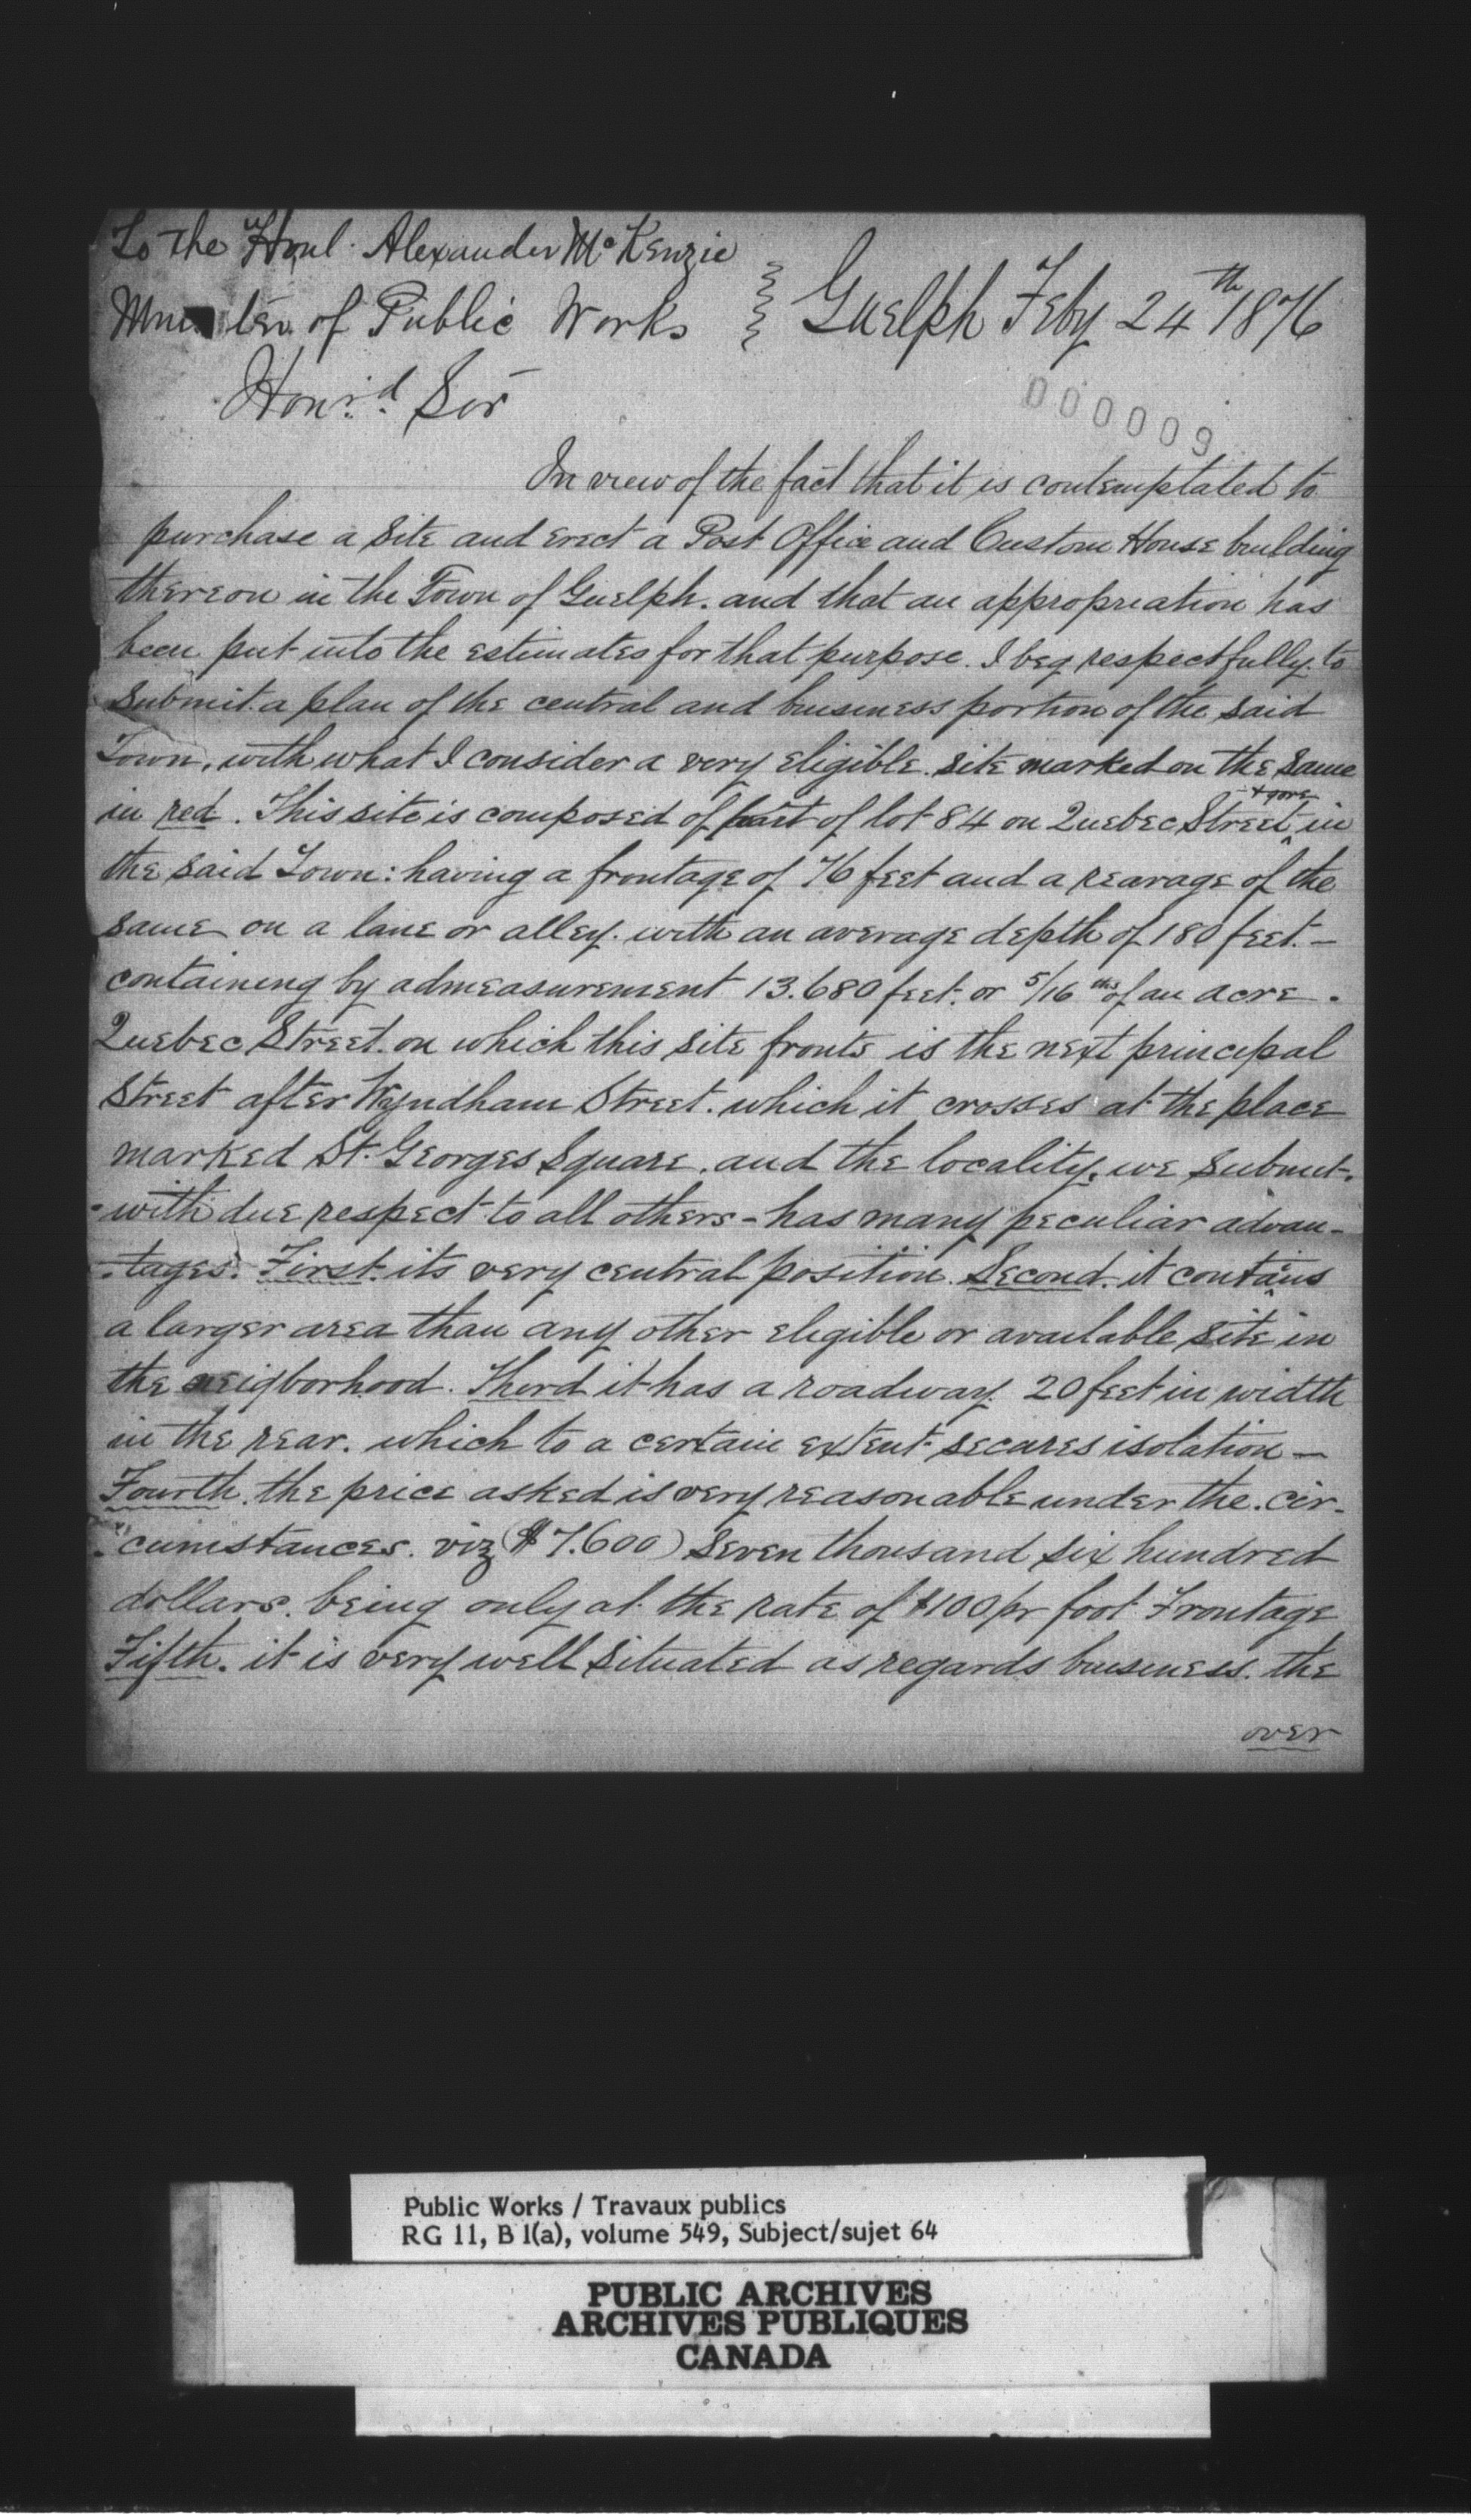 To the Honl. Alexander McKenzie
Minister of Public Works } Guelph Feby 24th 1876
Honrd. Sir
000009
In view of the fact that it is contemplated to
purchase a site and erect a Post Office and Custom House building
thereon in the Town of Guelph. and that an appropriation has
been put into the estimates for that purpose. I beg respectfully to
submit a plan of the central and business portion of the said
Town, with what I consider a very eligible site marked on the same
in red. This site is composed of part of lot 84 on Quebec Street + gore in
the said Town: having a frontage of 76 feet and a rearage of the
same on a lane or alley. with an average depth of 180 feet. —
containing by admeasurement 13.680 feet. or 5/16ths of an acre.
Quebec Street. on which this site fronts is the next principal
Street after Wyndham Street. which it crosses at the place
marked St. Georges Square. and the locality, we submit.
-with due respect to all others - has many peculiar advan-
-tages. First. its very central position. Second. it contains
a larger area than any other eligible or available site in
the neigborhood. Third it has a roadway. 20 feet in width
in the rear. which to a certain extent secures isolation —
Fourth. the price asked is very reasonable under the. cir-
cumstances. viz ($7.600) Seven thousand six hundred
dollars. being only at the rate of $100 pr foot Frontage
Fifth. it is very well situated as regards business. the
over
Public Works / Travaux publics
RG 11, B 1(a), volume 549, Subject/sujet 64
PUBLIC ARCHIVES
ARCHIVES PUBLIQUES
CANADA